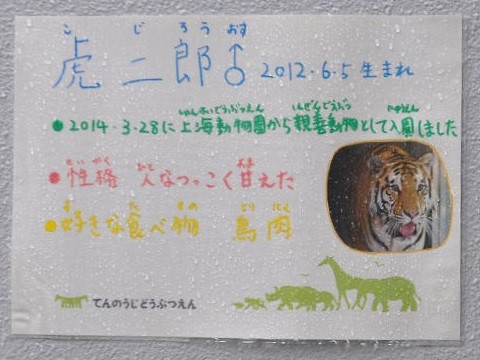 こ じ ろう おす
虎二郎♂ 2012・6・5 生まれ
しゃんはいどうぶつえん しんぜんどうぶつ にゅうえん
●2014・3・28に上海動物園から親善動物として入園しました
せいかく ひと あま
●性格 人なつっこく甘えた
す た もの とり にく
●好きな食べ物 鳥肉
てんのうじどうぶつえん